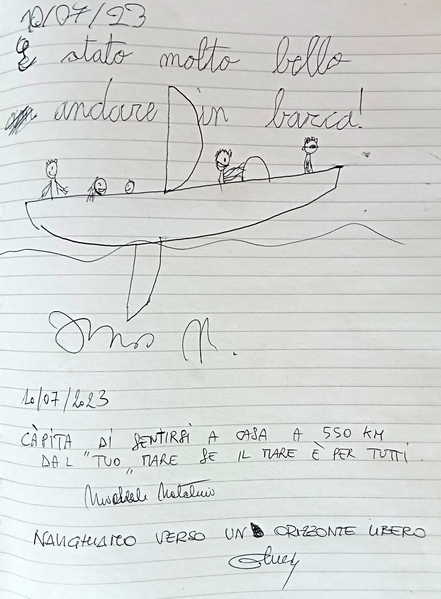 10/07/23
È stato molto bello
andare in barca!
10/07/2023
CÀPITA DI SENTIRSI A CASA A 550 KM
DAL "TUO" MARE SE IL MARE È PER TUTTI.
NAVIGHIAMO VERSO UN ORIZZONTE LIBERO